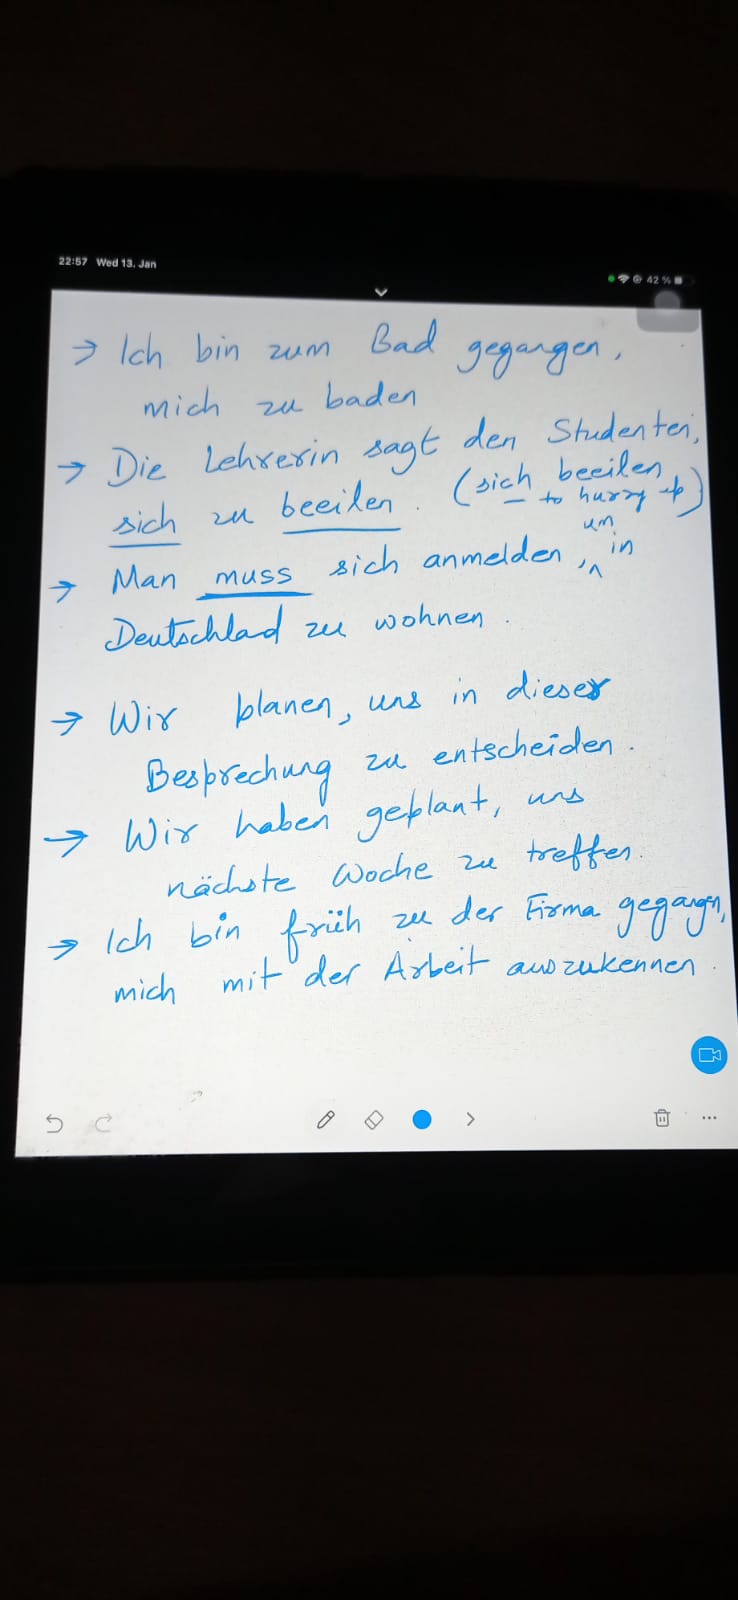 22:57 Wed 13. Jan
42 %
→ Ich bin zum Bad gegangen,
mich zu baden
→ Die Lehrerin sagt den Studenten,
sich zu beeilen. (sich beeilen
- to hurry up)
um
→ Man muss sich anmelden, in
Deutschlad zu wohnen.
→ Wir planen, uns in dieser
Besprechung zu entscheiden.
→ Wir haben geplant, uns
nächste Woche zu treffen.
→ Ich bin früh zu der Firma gegangen,
mich mit der Arbeit auszukennen.